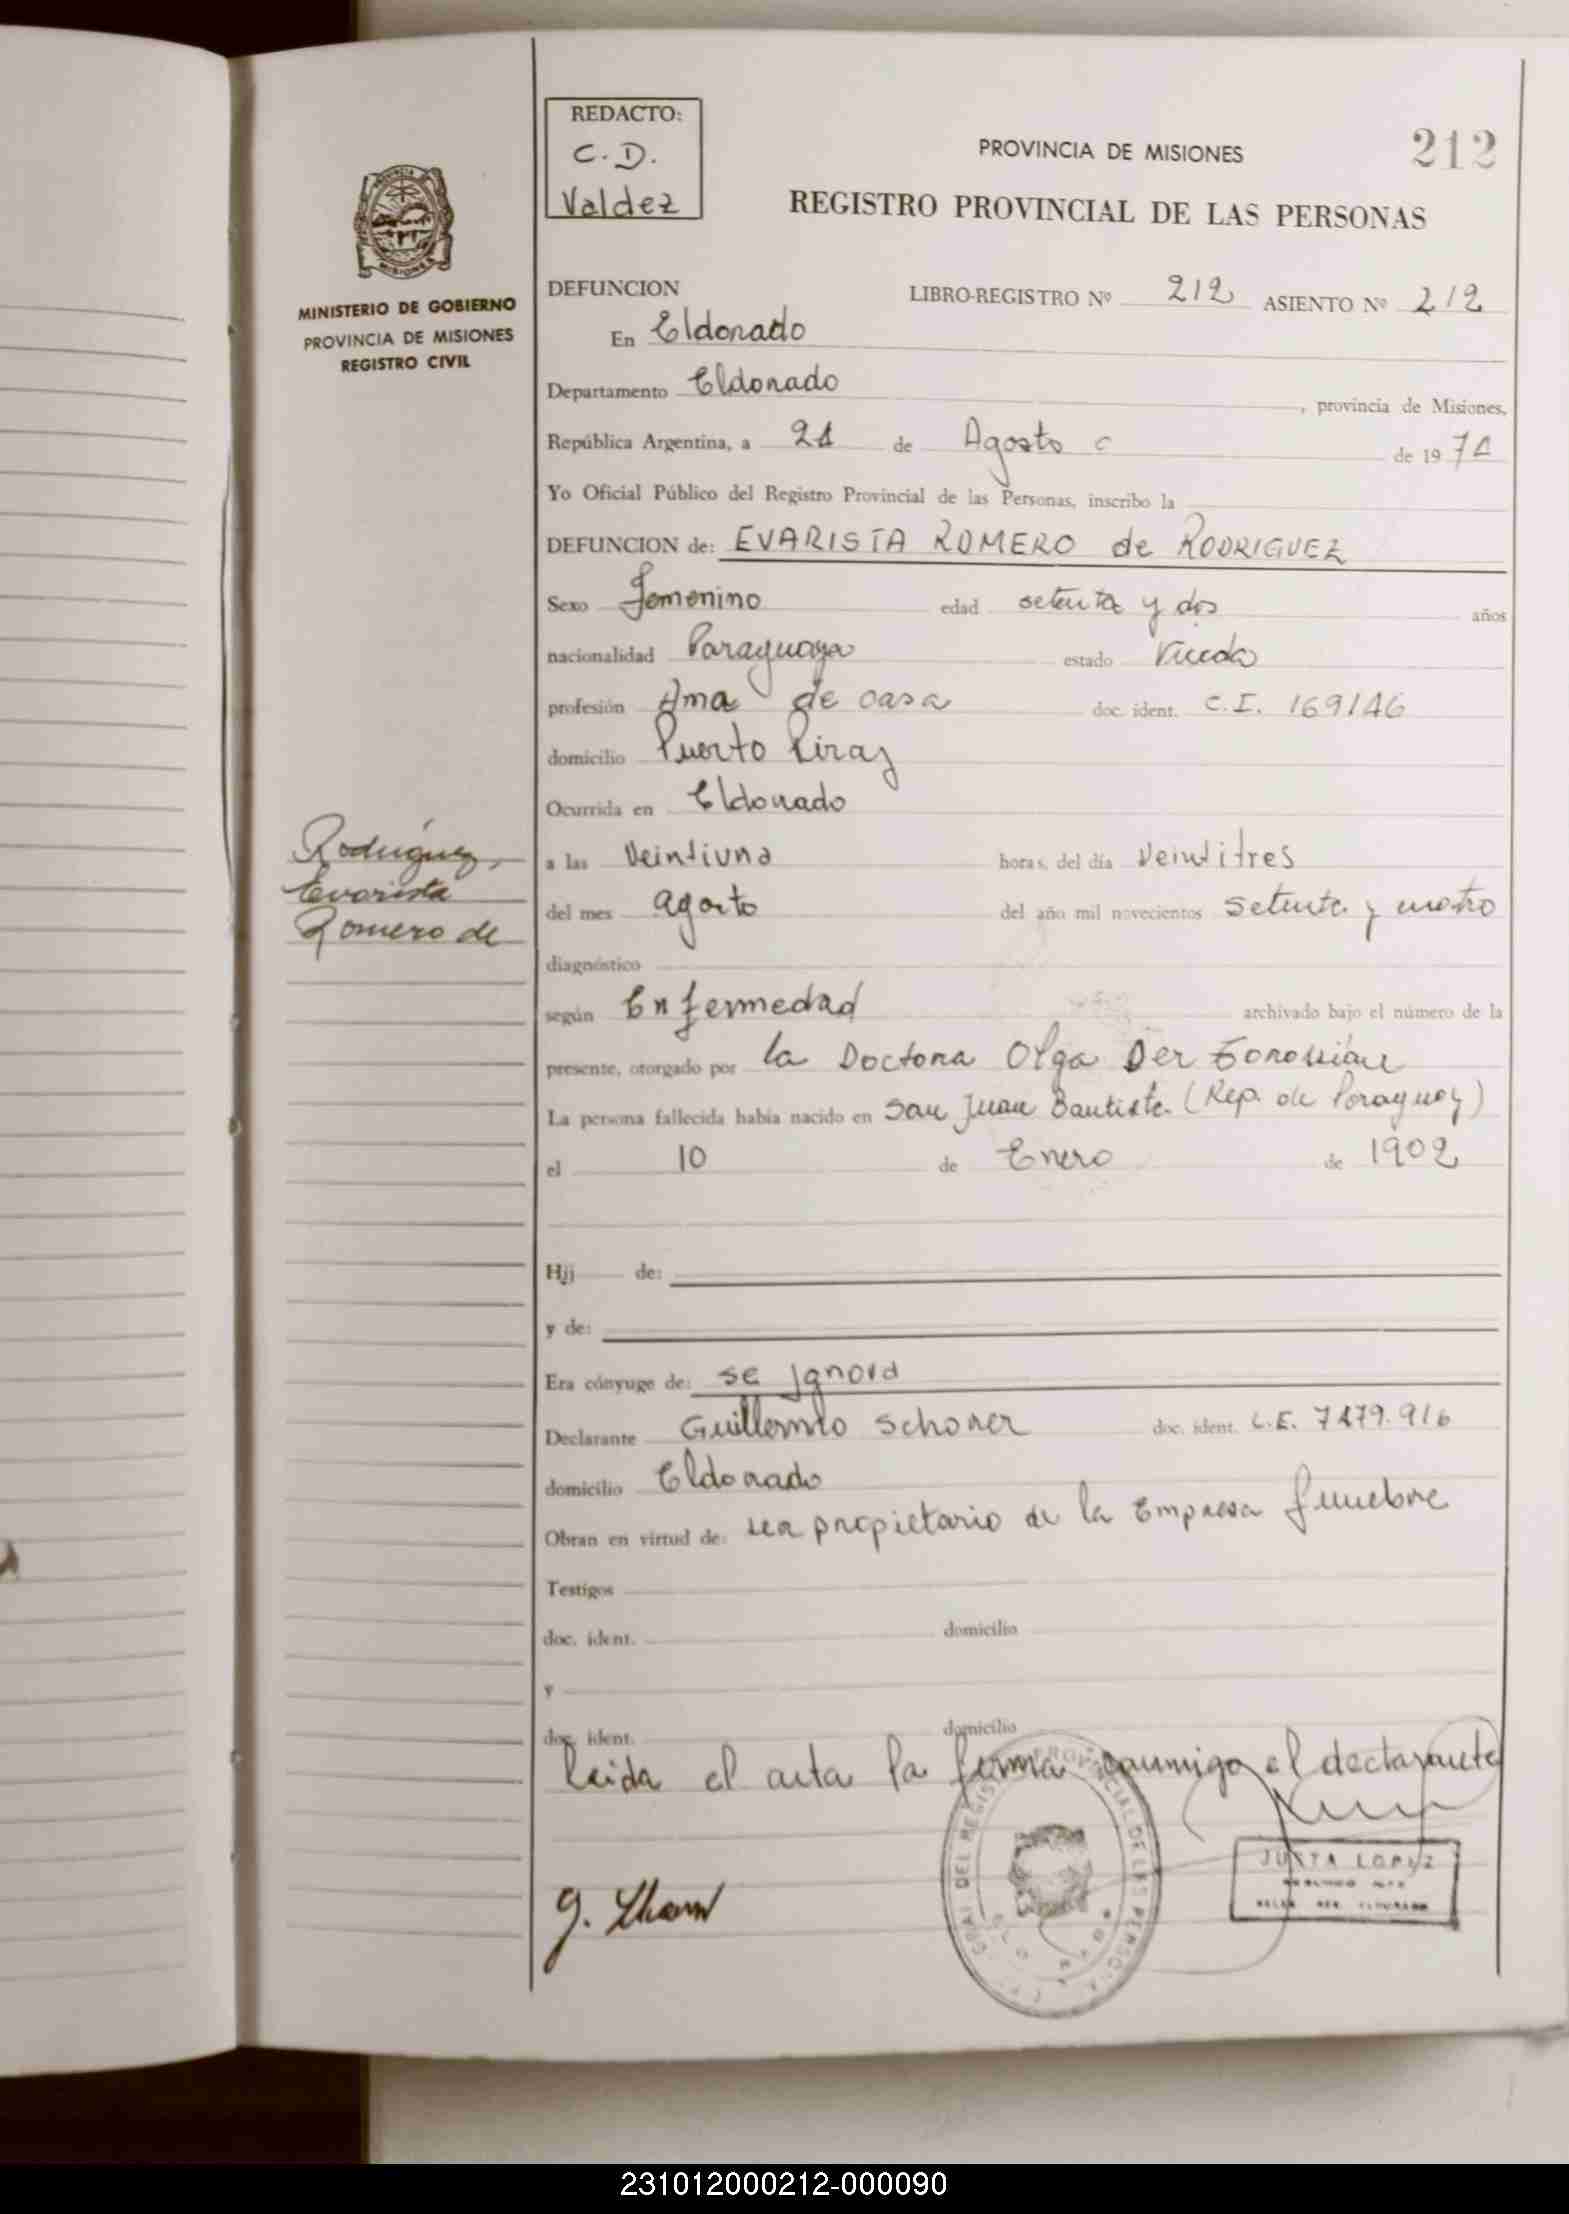 REDACTO:
C. D.
Valdez
PROVINCIA DE MISIONES
212
REGISTRO PROVINCIAL DE LAS PERSONAS
MINISTERIO DE GOBIERNO
PROVINCIA DE MISIONES
REGISTRO CIVIL
DEFUNCION LIBRO-REGISTRO Nº 212 ASIENTO Nº 212
En Eldorado
Departamento Eldorado , provincia de Misiones,
República Argentina, a de Agosto de 19 74
Yo Oficial Público del Registro Provincial de las Personas, inscribo la
DEFUNCION de: EVARISTA ROMERO de RODRIGUEZ
Sexo Femenino edad setenta y dos años
nacionalidad Paraguaya estado Viuda
profesión Ama de casa doc. ident. C.I. 169146
domicilio Puerto Piray
Ocurrida en Eldorado
Rodríguez,
Evarista
Romero de
a las Veintiuna horas, del día Veintitres
del mes agosto del año mil novecientos setenta y cuatro
diagnóstico
según Enfermedad archivado bajo el número de la
presente, otorgado por la Doctora Olga Der
La persona fallecida había nacido en San Juan Bautista (Rep. de Paraguay)
el 10 de Enero de 1902
Hij de:
y de:
Era cónyuge de: se Ignora
Declarante Guillermo Schoner doc. ident. L.E.
domicilio Eldorado
Obran en virtud de: ser propietario de la Empresa funebre
Testigos
doc. ident. domicilio
y
doc. ident. domicilio
leida el acta la firma conmigo el declarante
JUSTA LOPEZ
231012000212-000090